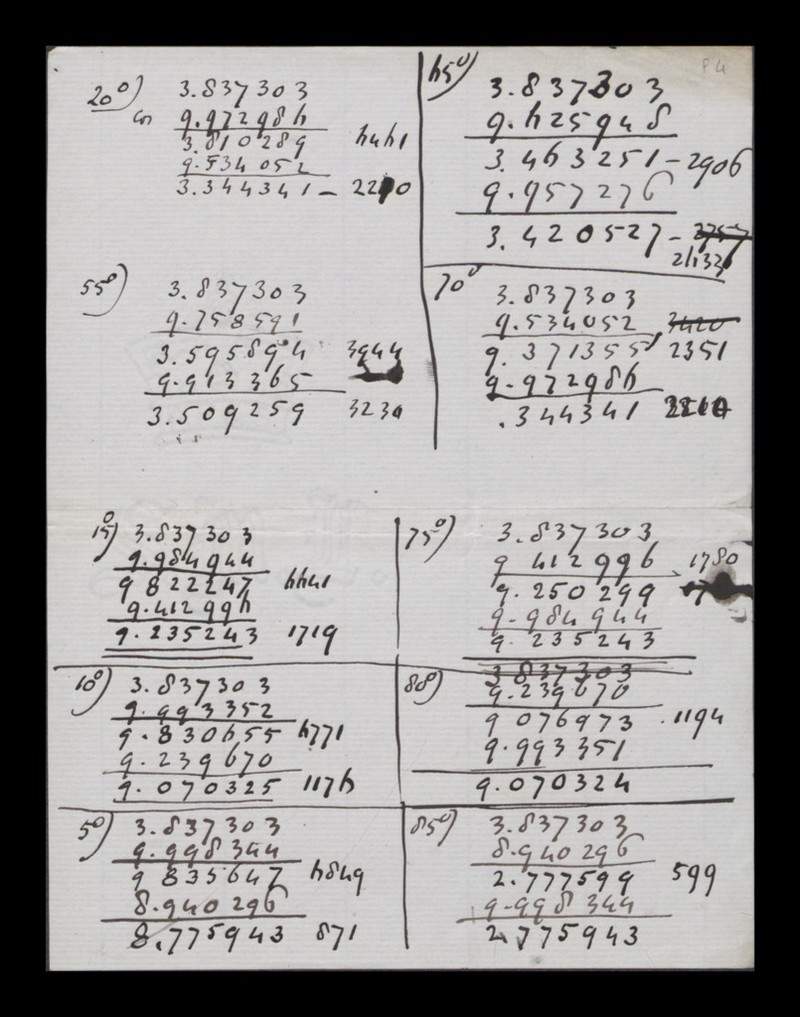 20°)
3.837303
cos 9.972986
3.810289 6461
9.534052
3.344341 – 2210
65°)
3.837303
9.625948
3.463251 – 2906
9.957276
3.420527 – 2757
P4
55°)
3.837303
9.758591
3.595894 3944
9.913365
3.509259 3230
70°
3.837303
9.534052 3420
9.371355 2351
9.972986
.344341 2210
15°)
3.837303
9.984944
9 822247 6641
9.412996
9.235243 1719
75°)
3.837303
9 412996 1780
9.250299
9.984944
9.235243
10°)
3.837303
9.993352
9.830655 6771
9.239670
9.070325 1176
80°)
3 837303
9.239670
9 076973 .1194
9.993351
9.070324
5°)
3.837303
9.998344
9 835647 6849
8.940296
8.775943 871
85°)
3.837303
8.940296
2.777599 599
9.998344
2.775943